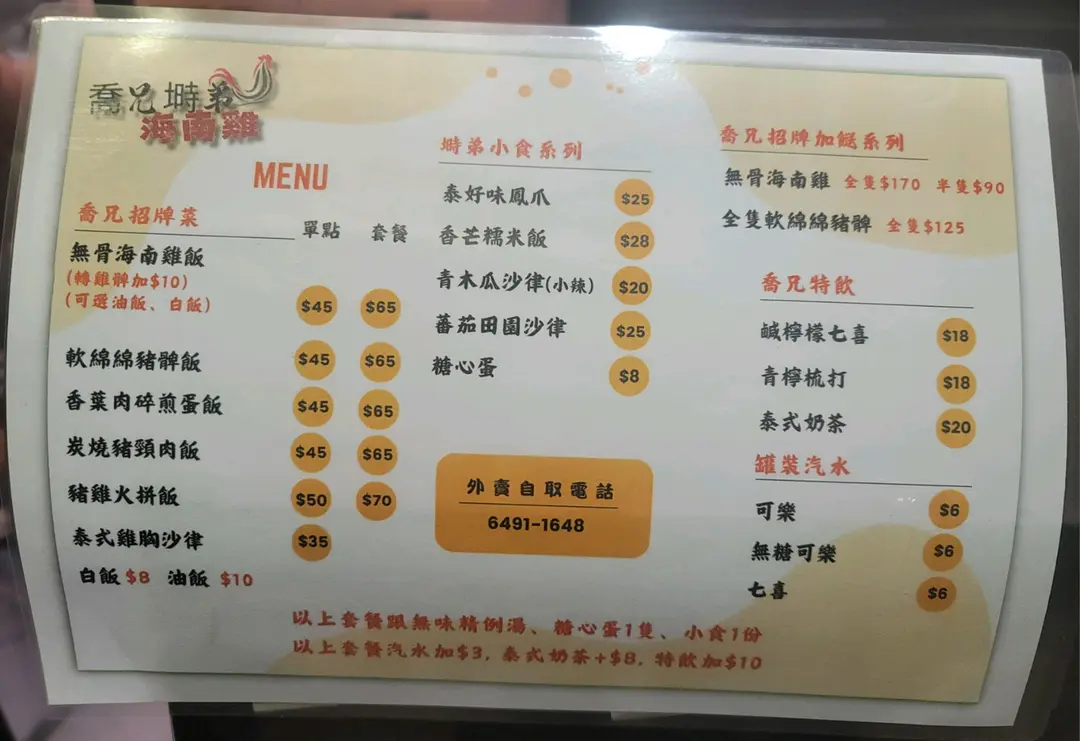 喬兄塒弟
海南雞
MENU
喬兄招牌菜
單點 套餐
無骨海南雞飯
(轉雞髀加$10)
(可選油飯、白飯) $45 $65
軟綿綿豬髀飯 $45 $65
香葉肉碎煎蛋飯 $45 $65
炭燒豬頸肉飯 $45 $65
豬雞火拼飯 $50 $70
泰式雞胸沙律 $35
白飯 $8 油飯 $10
塒弟小食系列
泰好味鳳爪 $25
香芒糯米飯 $28
青木瓜沙律(小辣) $20
蕃茄田園沙律 $25
糖心蛋 $8
外賣自取電話
6491-1648
喬兄招牌加餸系列
無骨海南雞 全隻$170 半隻$90
全隻軟綿綿豬髀 全隻$125
喬兄特飲
鹹檸檬七喜 $18
青檸梳打 $18
泰式奶茶 $20
罐裝汽水
可樂 $6
無糖可樂 $6
七喜 $6
以上套餐跟無味精例湯、糖心蛋1隻、小食1份
以上套餐汽水加$3, 泰式奶茶+$8, 特飲加$10